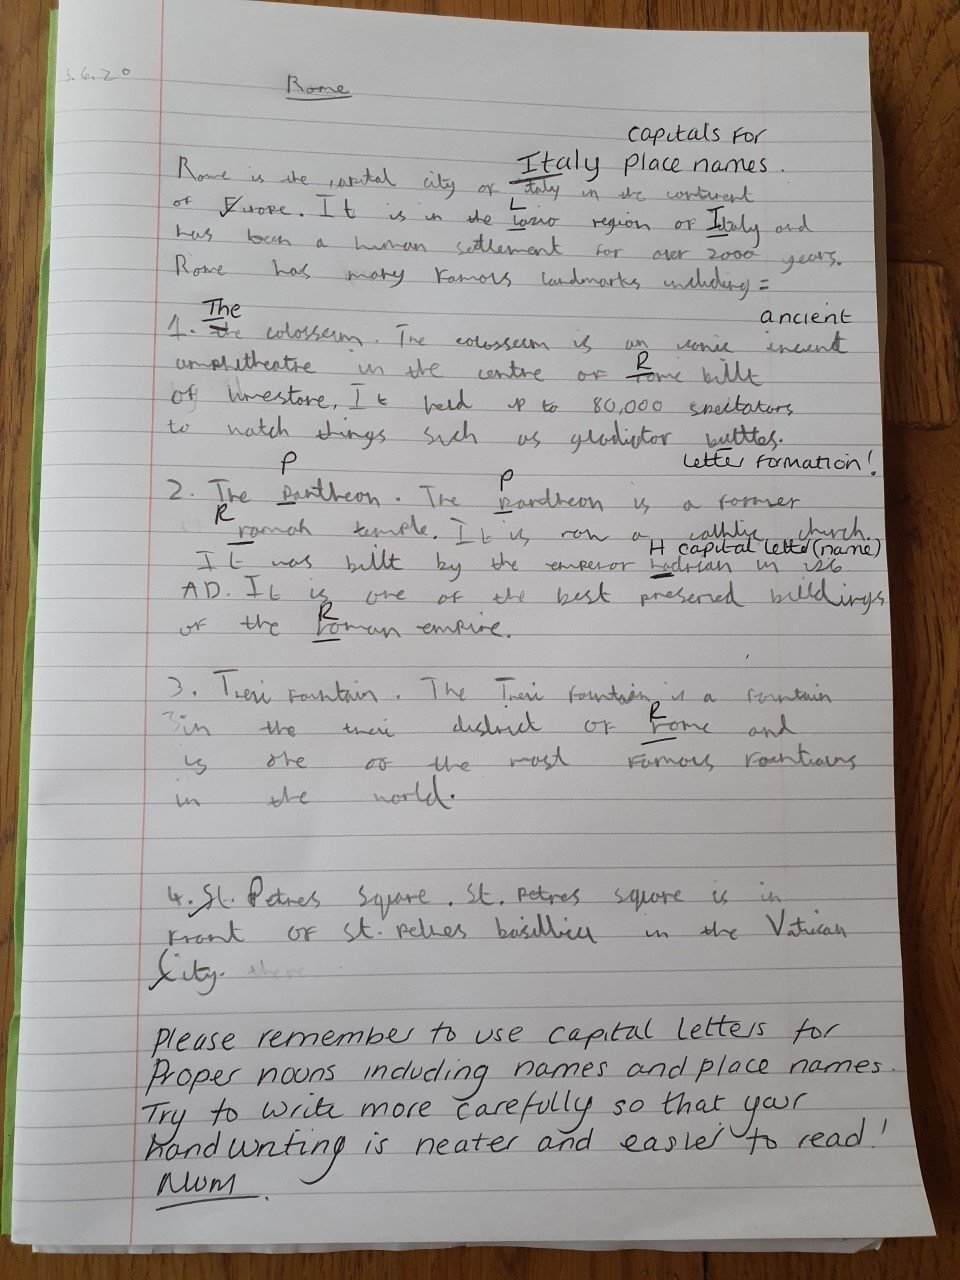 3.6.20
Rome
capitals for
Italy place names.
Rome is the capital city of italy in the continent
L
of Europe. It is in the lazio region of Italy and
has been a human settlement for over 2000 years.
Rome has many famous landmarks including =
The ancient
1. the colosseum. The colosseum is an iconic incent
R
amphitheatre in the centre of rome billt
of limestone. It held up to 80,000 spectators
to watch things such as gladiator battles.
letter formation!
P P
2. The pantheon. The pantheon is a former
R
roman temple. It is now a cathlic church.
H capital letter (name)
It was billt by the emperor hadrian in 126
AD. It is one of the best preserved billdings
R
of the roman empire.
3. Trevi fountain. The Trevi fountain is a fountain
R
in the trevi district of rome and
is one of the most famous fountians
in the world.
4. St. Petres Square. St. petres square is in
front of st. petres basillica in the Vatican
City.
Please remember to use capital letters for
proper nouns including names and place names.
Try to write more carefully so that your
handwriting is neater and easier to read!
MUM